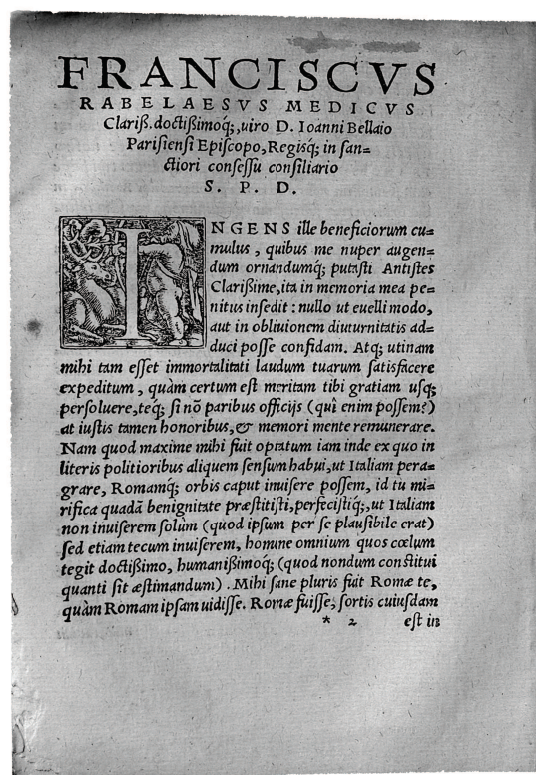 FRANCISCVS
RABELAESVS MEDICVS
Clariß. doctißimoq́;, uiro D. Ioanni Bellaio
Parisiensi Episcopo, Regisq́; in san=
ctiori consessu consiliario
S. P. D.
INGENS ille beneficiorum cu=
mulus, quibus me nuper augen=
dum ornandumq́; putasti Antistes
Clarißime, ita in memoria mea pe=
nitus insedit: nullo ut euelli modo,
aut in obliuionem diuturnitatis ad=
duci posse confidam. Atq; utinam
mihi tam esset immortalitati laudum tuarum satisfacere
expeditum, quàm certum est meritam tibi gratiam usq;
persoluere, teq; si nõ paribus officijs (quî enim possem?)
at iustis tamen honoribus, & memori mente remunerare.
Nam quod maxime mihi fuit optatum iam inde ex quo in
literis politioribus aliquem sensum habui, ut Italiam pera=
grare, Romamq́; orbis caput inuisere possem, id tu mi=
rifica quadã benignitate præstitisti, perfecistiq́;, ut Italiam
non inuiserem solùm (quod ipsum per se plausibile erat)
sed etiam tecum inuiserem, homine omnium quos cœlum
tegit doctißimo, humanißimoq́; (quod nondum constitui
quanti sit æstimandum). Mihi sane pluris fuit Romæ te,
quàm Romam ipsam uidisse. Romæ fuisse, sortis cuiusdam
* 2 est in